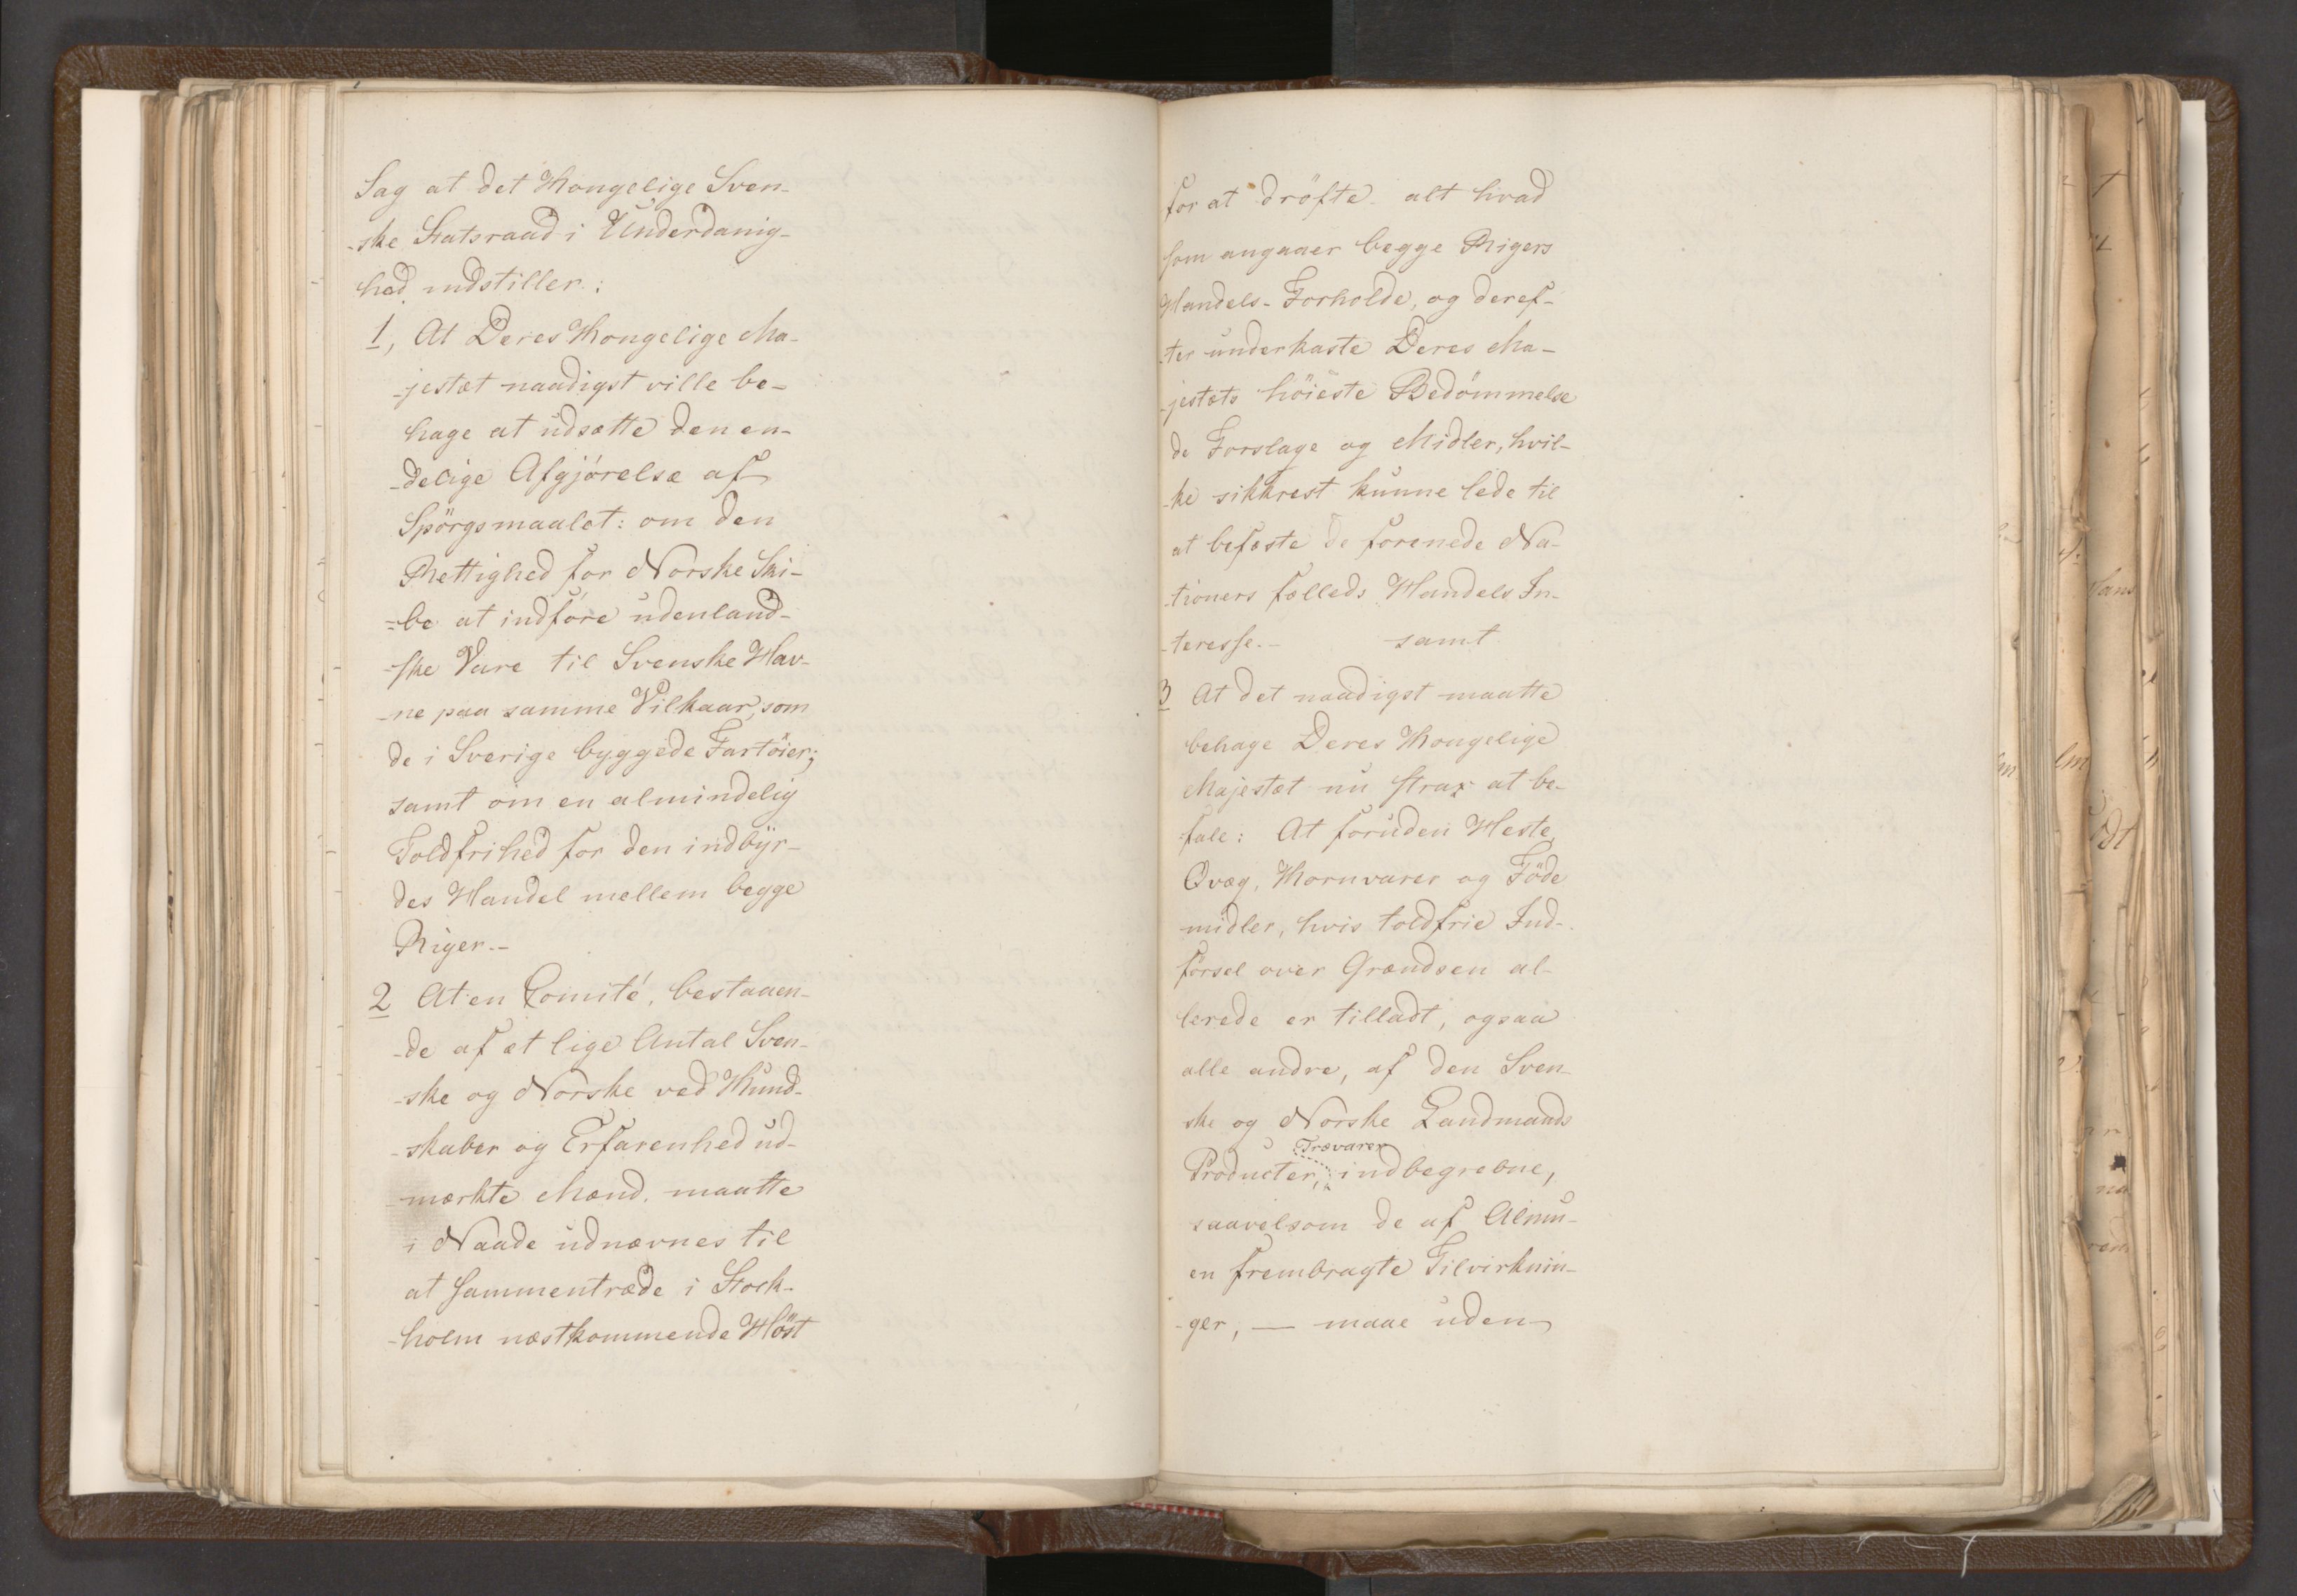 Sag at det Kongelige Sven-
-ske Statsraad i Underdanig-
hed indstiller:
1, At Deres Kongelige Ma-
-jestæt naadigst ville be-
hage at udsætte den en-
-delige Afgjörelse af
Spörgsmaalet: om den
Rettighed for Norske Ski-
=be at indföre udenland-
-ske Vare til Svenske Hav-
-ne paa samme Vilkaar, som
de i Sverige byggede Fartöier;
samt om en almindelig
Toldfrihed for den indbyr-
des Handel mellem begge
Riger.-
2 At en Comité, bestaaen-
-de af et lige Antal Sven-
-ske og Norske ved Kund-
-skaber og Erfarenhed ud-
mærkte Mænd, maatte
i Naade udnævnes til
at sammentræde i Stock-
-holm næstkommende Höst
for at dröfte alt hvad
som angaaer begge Rigers
Handels-Forholde, og deref-
-ter underkaste Deres Ma-
-jestæts höieste Bedömmelse
de Forslage og Midler, hvil-
-ke sikkrest kunne lede til
at befæste de forenede Na-
-tioners fælleds Handels In-
-teresse.- samt
3 At det naadigst maatte
behage Deres Kongelige
Majestæt nu strax at be-
fale: At foruden Heste,
Qvæg, Kornvarer og Föde
midler, hvis toldfrie Ind-
försel over Grændsen al-
lerede er tilladt, ogsaa
alle andre, af den Sven-
ske og Norske Landmands
Trævarer
Producter, indbegrebne,
saavelsom de af Almu-
en frembragte Tilvirknin-
-ger, — maae uden